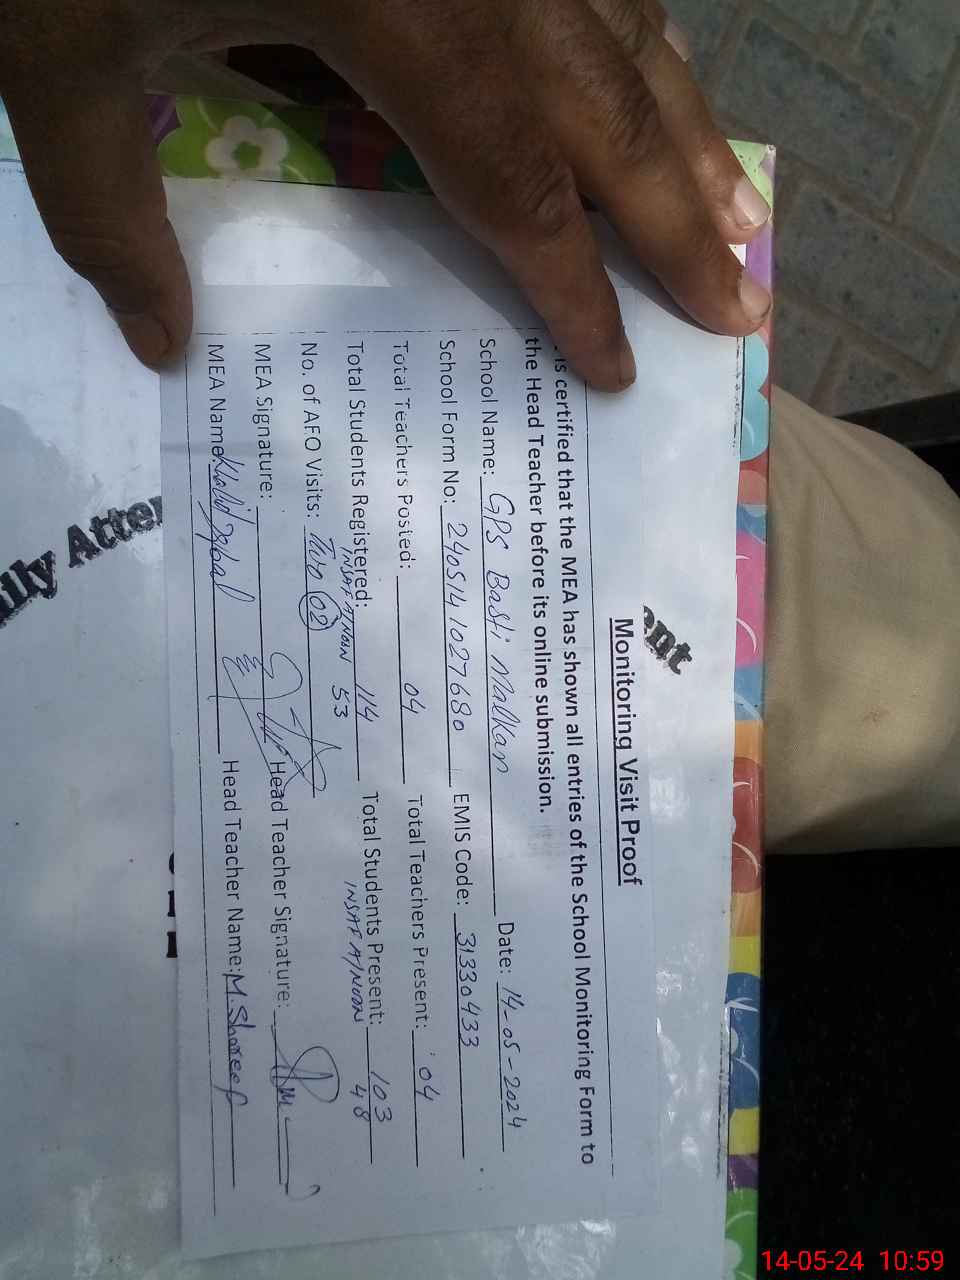 ent
Monitoring Visit Proof
is certified that the MEA has shown all entries of the School Monitoring Form to
the Head Teacher before its online submission.
School Name: GPS Basti Malkan Date: 14-05-2024
School Form No: 2405141027680 EMIS Code: 31330433
Total Teachers Posted: 04 Total Teachers Present: 04
Total Students Registered: 114 Total Students Present: 103
INSAF A/NOON 53 INSAF A/NOON 48
No. of AFO Visits: Two 02
MEA Signature: Head Teacher Signature:
MEA Name: Khalid Iqbal Head Teacher Name: M. Shareef
ily Atte
14-05-24 10:59